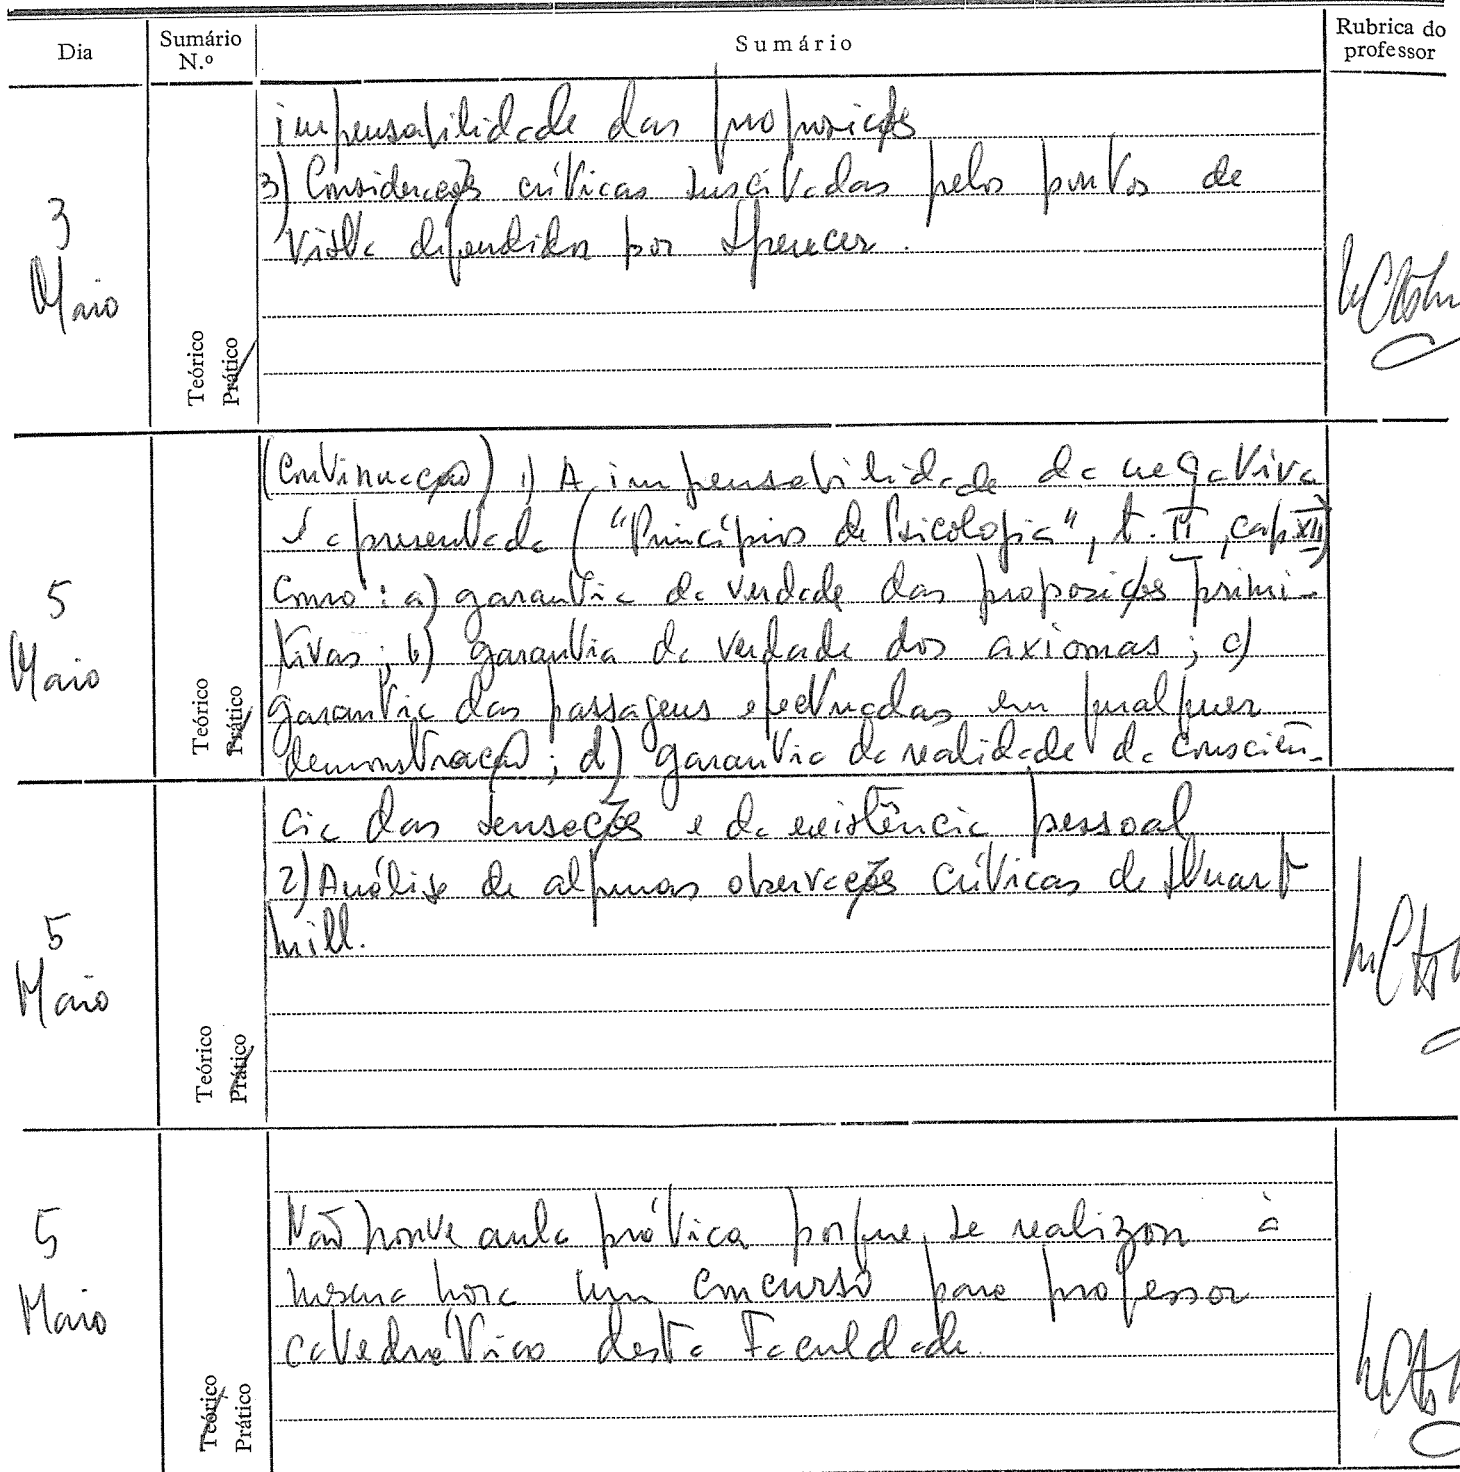 Dia
Sumário N.º
Sumário
Rubrica do professor
3 Maio
Teórico
Prático
impensabilidade das proposições
3) Considerações críticas suscitadas pelos pontos de
vista defendidos por Spencer.
5 Maio
Teórico
Prático
(Continuação) 1) A impensabilidade da negativa
é apresentada ("Princípios de Psicologia", t. II, cap XII)
como: a) garantia da verdade das proposições primi-
tivas; b) garantia da verdade dos axiomas; c)
garantia das passagens efectuadas em qualquer
demonstração; d) garantia da realidade da consciên-
5 Maio
Teórico
Prático
cia das sensações e da existência pessoal
2) Análise de algumas observações críticas de Stuart
Mill.
5 Maio
Teórico
Prático
Não houve aula prática porque se realizou à
mesma hora um concurso para professor
catedrático desta Faculdade.